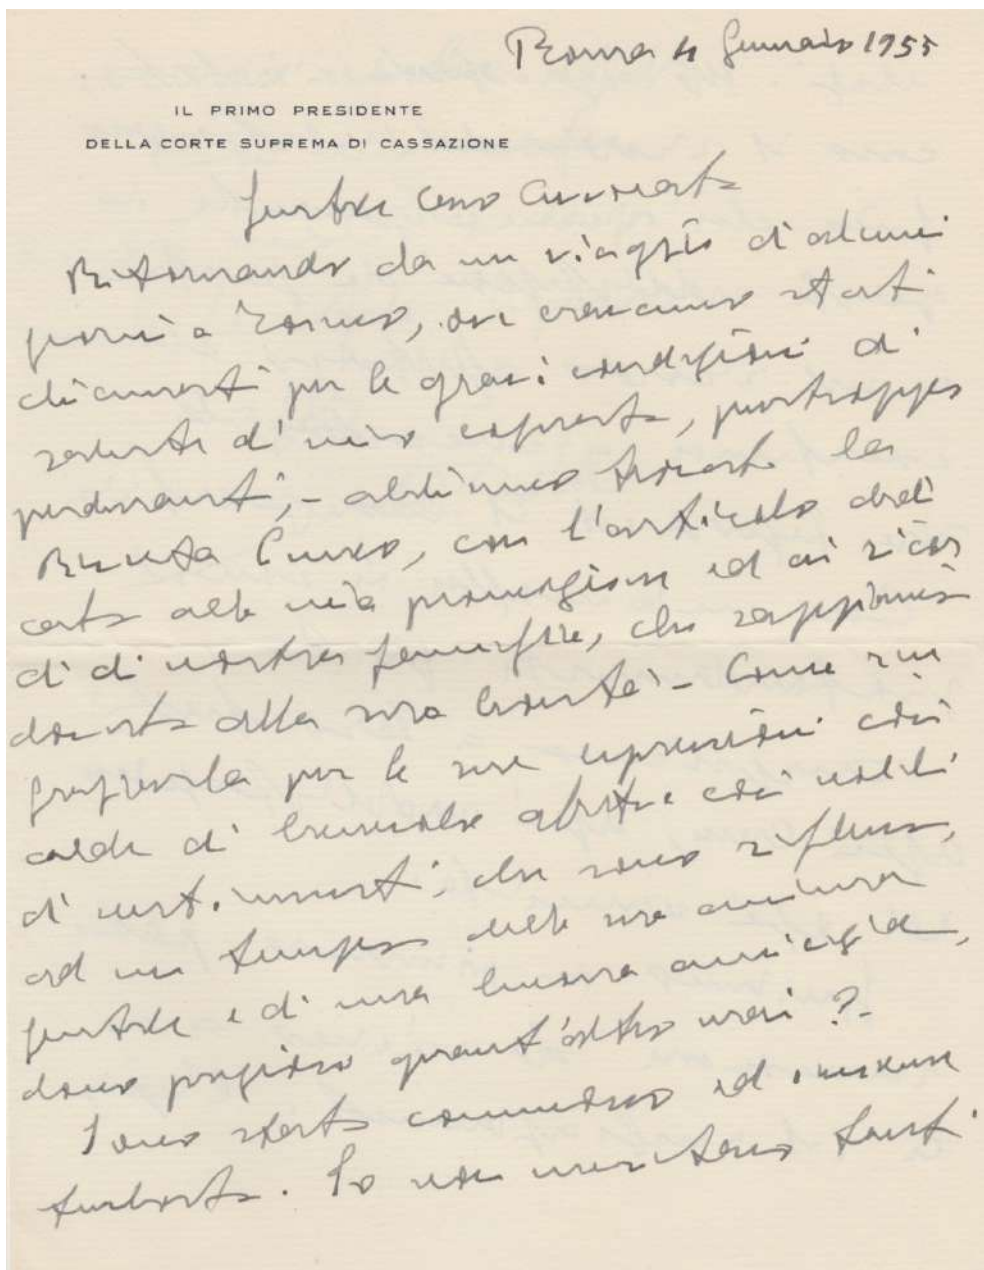 Roma 4 Gennaio 1955
IL PRIMO PRESIDENTE
DELLA CORTE SUPREMA DI CASSAZIONE
Gentile Caro Avvocato
Ritornando da un viaggio di alcuni
giorni a Torino, ove eravamo stati
chiamati per le gravi condizioni di
salute di mio cognato, purtroppo
perduranti, - abbiamo trovato la
Rivista Cuneo, con l'articolo dedi
cato alla mia promozione ed ai ricor
di di nostra famiglia, che sappiamo
dovuto alla sua bontà - Come rin
graziarla per le sue espressioni così
calde di bontà e così nobili
di sentimenti, che sono riflesso,
ad un tempo della sua anima
gentile e di una buona amicizia,
dono prezioso quant'altro mai? -
Sono stato commosso ed insieme
turbato. Io non meritavo tanti